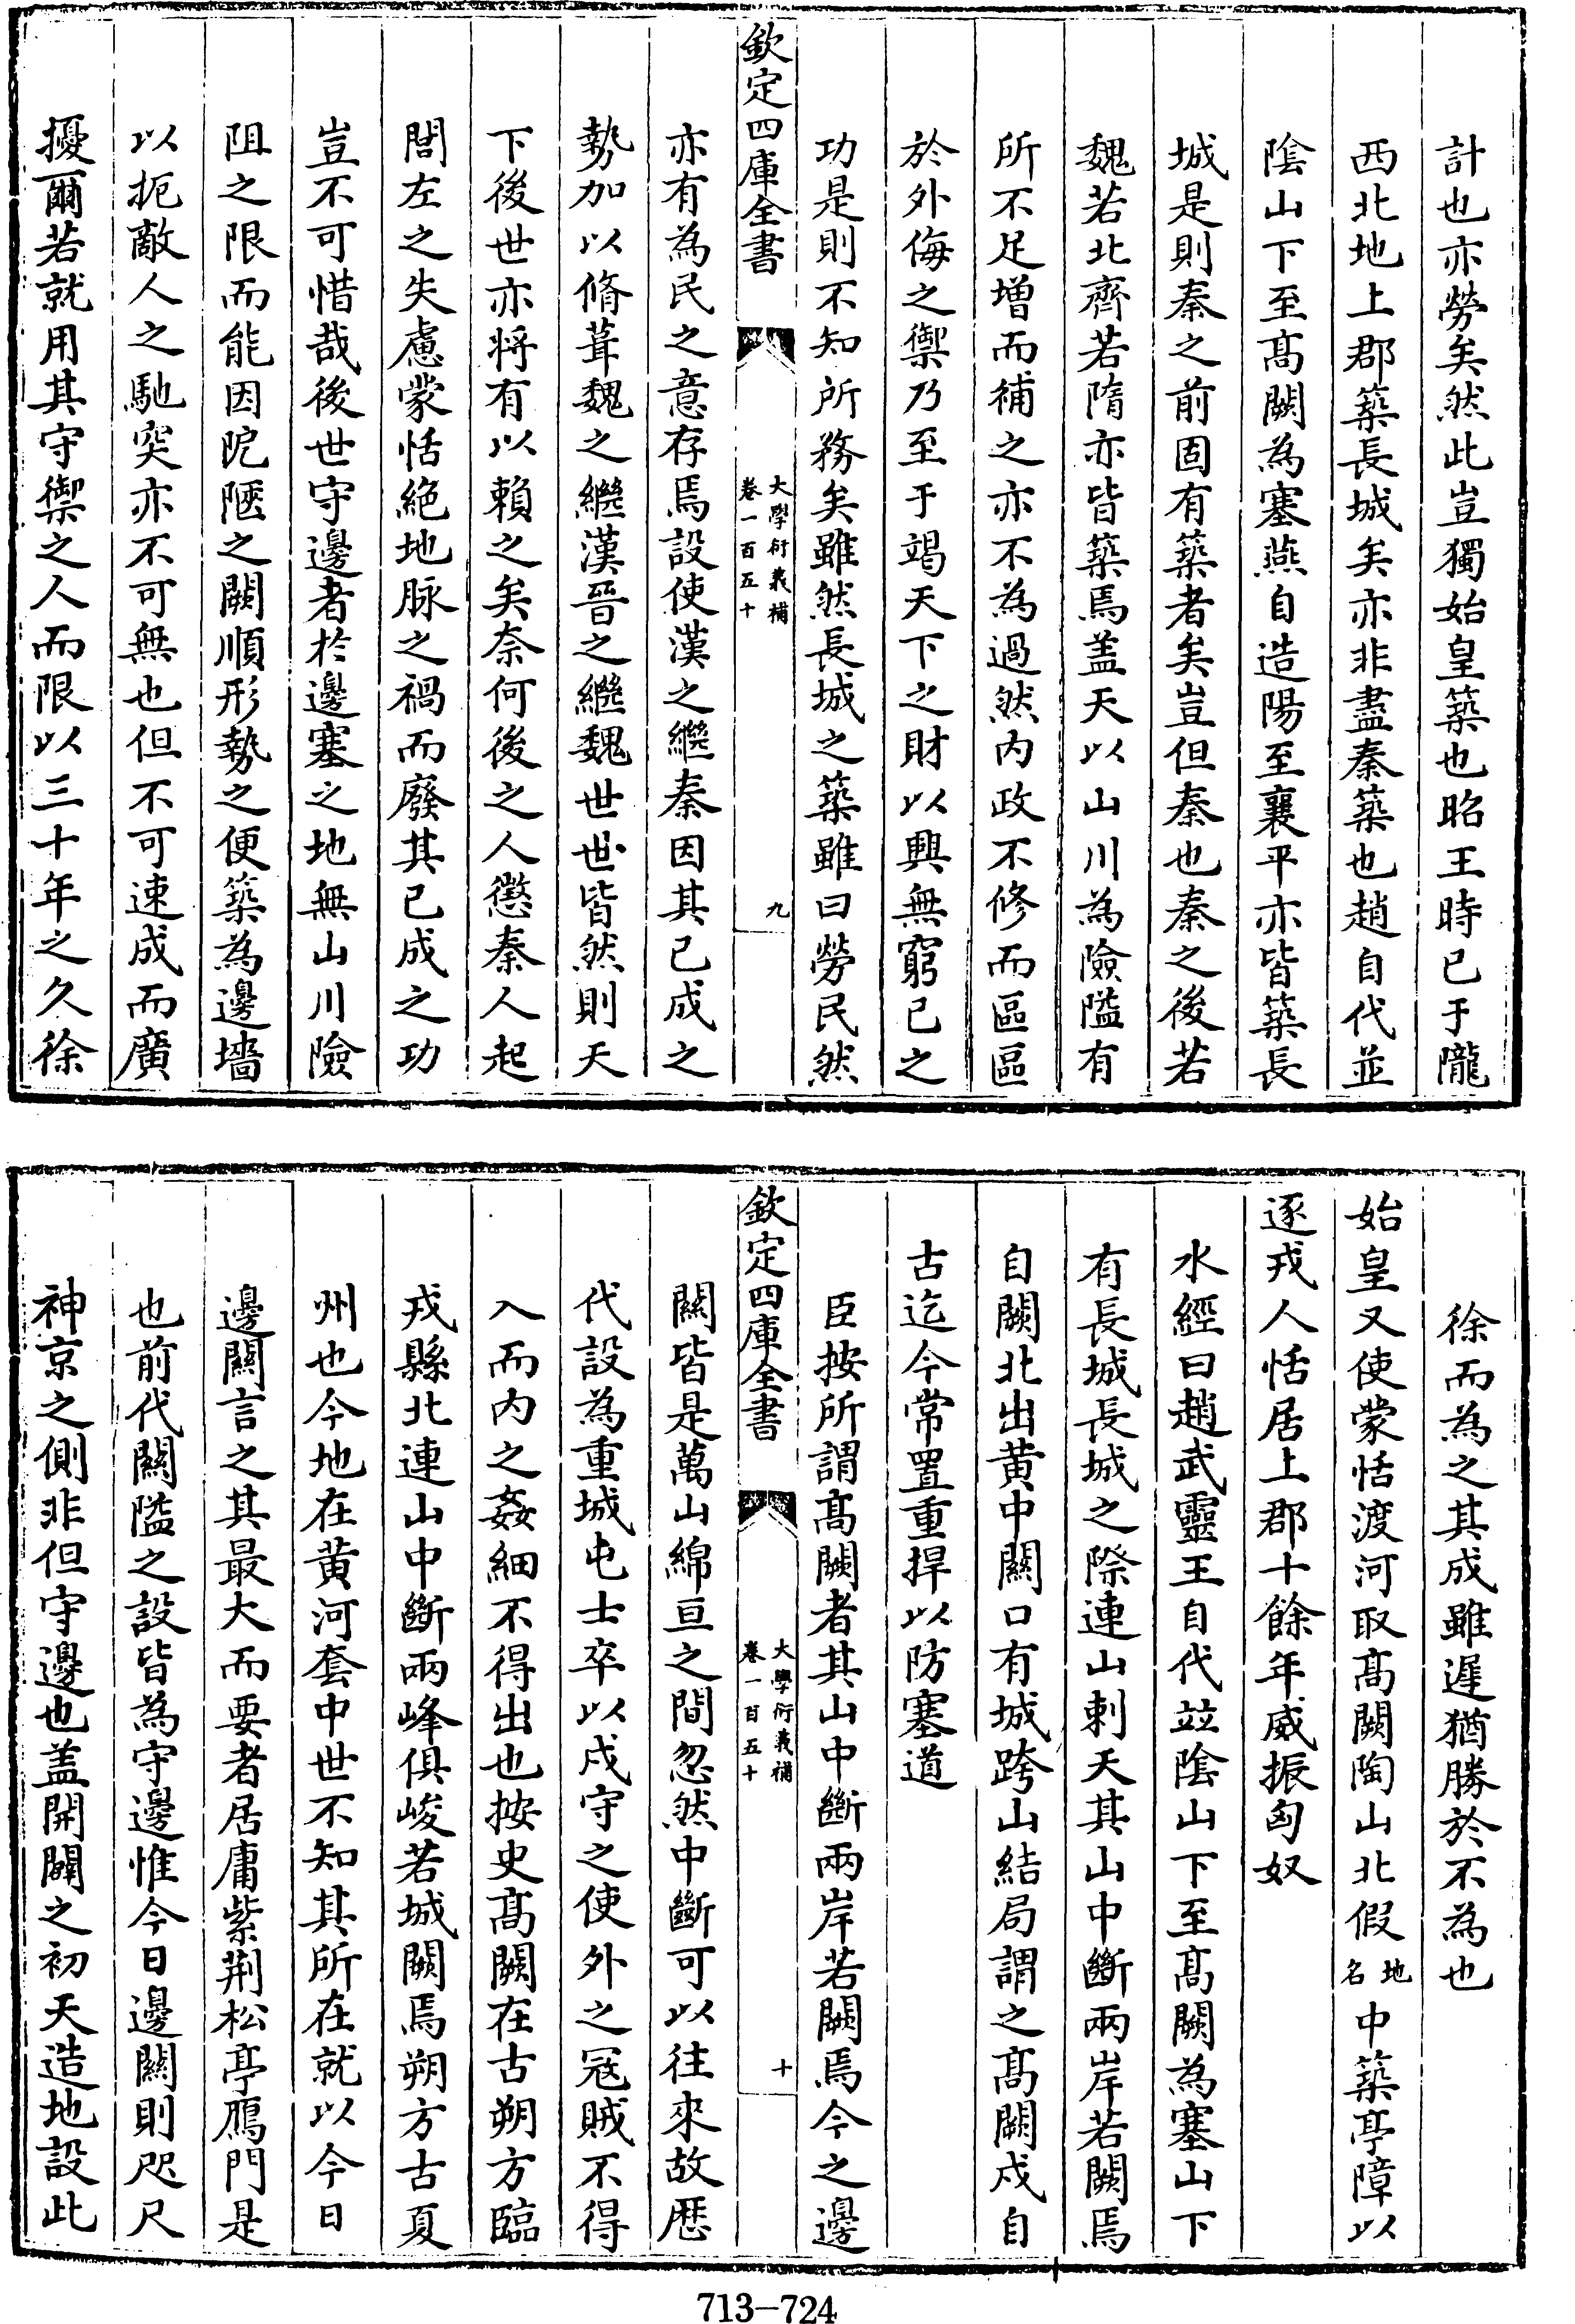 計也亦勞矣然此豈獨始皇築也昭王時已于隴
西北地上郡築長城矣亦非盡秦築也趙自代並
隂山下至髙闕為塞燕自造陽至襄平亦皆築長
城是則秦之前固有築者矣豈但秦也秦之後若
魏若北齊若隋亦皆築焉盖天以山川為險隘有
所不足増而補之亦不為過然内政不修而區區
於外侮之禦乃至于竭天下之財以興無窮已之
功是則不知所務矣雖然長城之築雖曰勞民然
欽定四庫全書
大學衍義補
卷一百五十
九
亦有為民之意存焉設使漢之繼秦因其已成之
勢加以脩葺魏之繼漢晉之繼魏世世皆然則天
下後世亦将有以賴之矣奈何後之人懲秦人起
閭左之失慮蒙恬絶地脉之禍而廢其已成之功
豈不可惜哉後世守邊者於邊塞之地無山川險
阻之限而能因阨陿之闕順形勢之便築為邊墻
以扼敵人之馳突亦不可無也但不可速成而廣
擾爾若就用其守禦之人而限以三十年之久徐
徐而為之其成雖遲猶勝於不為也
始皇又使蒙恬渡河取髙闕陶山北假地名中築亭障以
逐戎人恬居上郡十餘年威振匈奴
水經曰趙武靈王自代竝隂山下至髙闕為塞山下
有長城長城之際連山刺天其山中斷兩岸若闕焉
自闕北出黄中闗口有城跨山結局謂之髙闕戍自
古迄今常置重捍以防塞道
臣按所謂髙闕者其山中斷兩岸若闕焉今之邊
闗皆是萬山綿亘之間忽然中斷可以往來故歴
代設為重城屯士卒以戍守之使外之冦賊不得
入而内之姦細不得出也按史髙闕在古朔方臨
戎縣北連山中斷兩峰俱峻若城闕焉朔方古夏
州也今地在黄河套中世不知其所在就以今日
邊闗言之其最大而要者居庸紫荆松亭鴈門是
也前代闗隘之設皆為守邊惟今日邊闗則咫尺
神京之側非但守邊也盖開闢之初天造地設此
欽定四庫全書
大學衍義補
卷一百五十
十
713-724